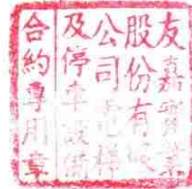 友嘉實業
股份有限
公司電梯
及停車設備
合約專用章